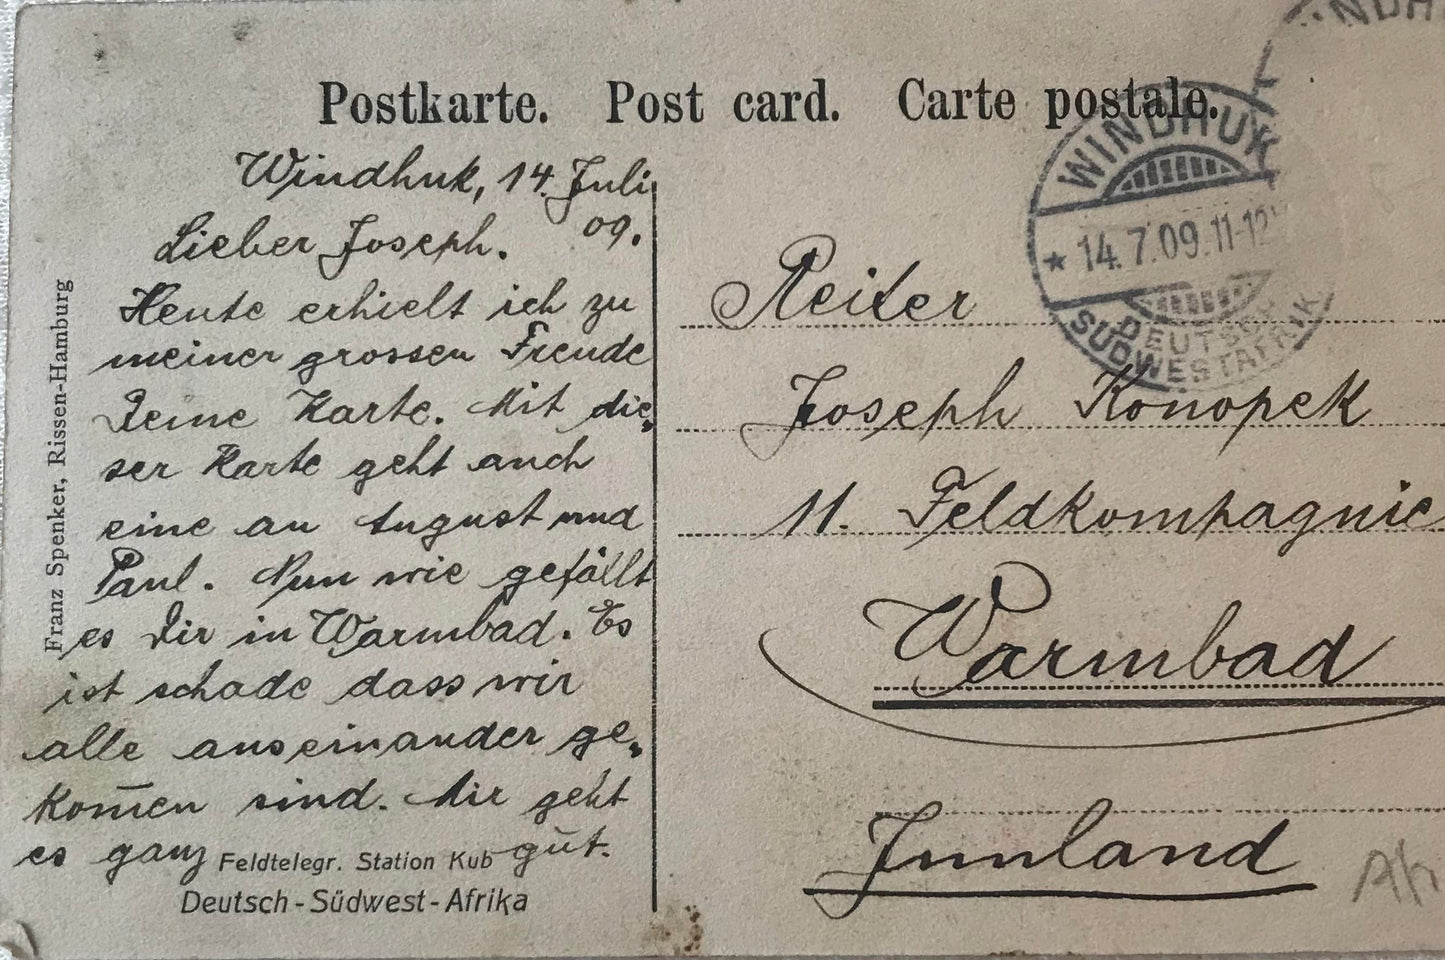 Postkarte. Post card. Carte postale.
Windhuk, 14. Juli
09.
Lieber Joseph.
Heute erhielt ich zu
meiner grossen Freude
Deine Karte. Mit die„
ser Karte geht auch
eine an August und
Paul. Nun wie gefällt
es Dir in Warmbad. Es
ist schade dass wir
alle auseinander ge„
kom̄en sind. Mir geht
es ganz gut.
Feldtelegr. Station Kub
Deutsch-Südwest-Afrika
Franz Spenker, Rissen-Hamburg
WINDHUK
* 14.7.09.11-12
DEUTSCH
SÜDWESTAFRIK
Reiter
Joseph Konopek
11. Feldkompagnie
Warmbad
Innland